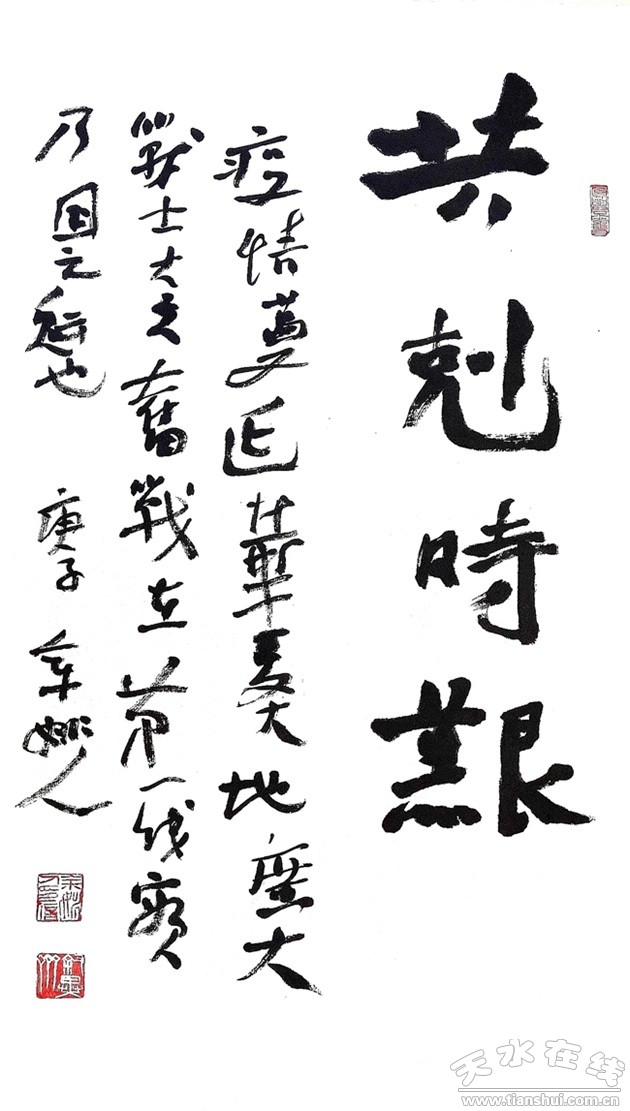 共剋時艱
疫情蔓延華夏大地廣大
戰士大夫奮戰在第一线實
乃国之也 庚子 人
天水在线
www.tianshui.com.cn